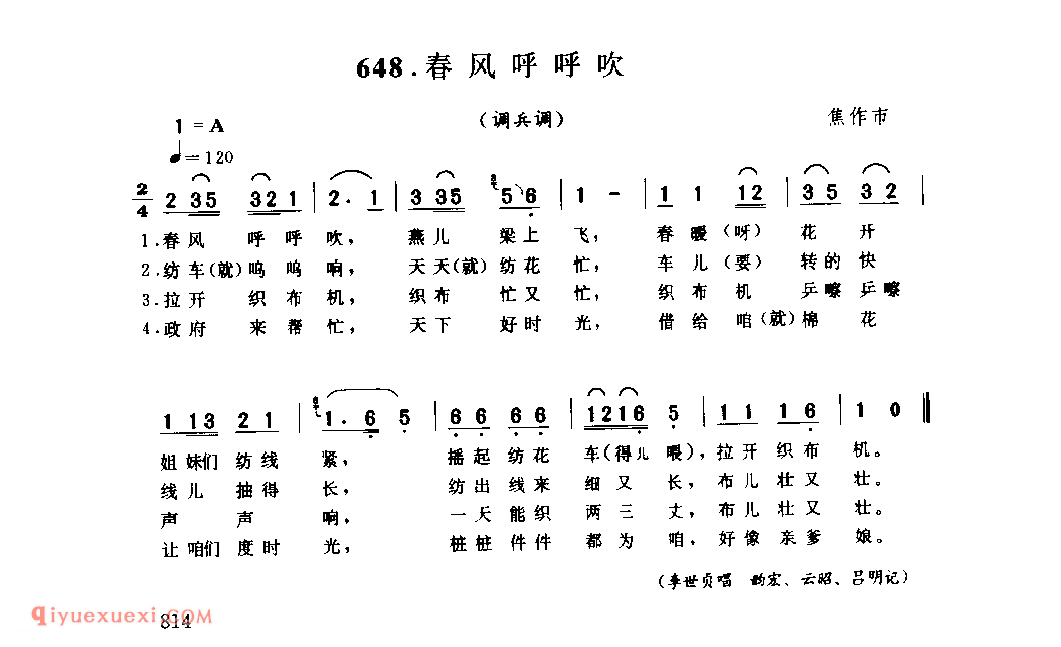 648.春风呼呼吹
(调兵调)
焦作市
1=A
♩=120
2/4 2 35 321 | 2. 1 | 3 35 56 | 1 - | 1 1 12 | 35 32 |
1.春风 呼呼吹, 燕儿 梁上飞, 春暖(呀)花开
2.纺车(就)呜呜响, 天天(就)纺花忙, 车儿(要)转的快
3.拉开 织布机, 织布 忙又忙, 织布机 乒嚓乒嚓
4.政府 来帮忙, 天下 好时光, 借给咱(就)棉花
1 13 21 | 1. 6 5 | 66 66 | 1216 5 | 11 16 | 1 0 ‖
姐妹们纺线紧, 摇起纺花车(得儿喂),拉开织布机。
线儿抽得长, 纺出线来细又长,布儿壮又壮。
声声响, 一天能织两三丈,布儿壮又壮。
让咱们度时光, 桩桩件件都为咱,好像亲爹娘。
(李世贞唱 韵宏、云昭、吕明记)
qiyuexuexi.COM
814